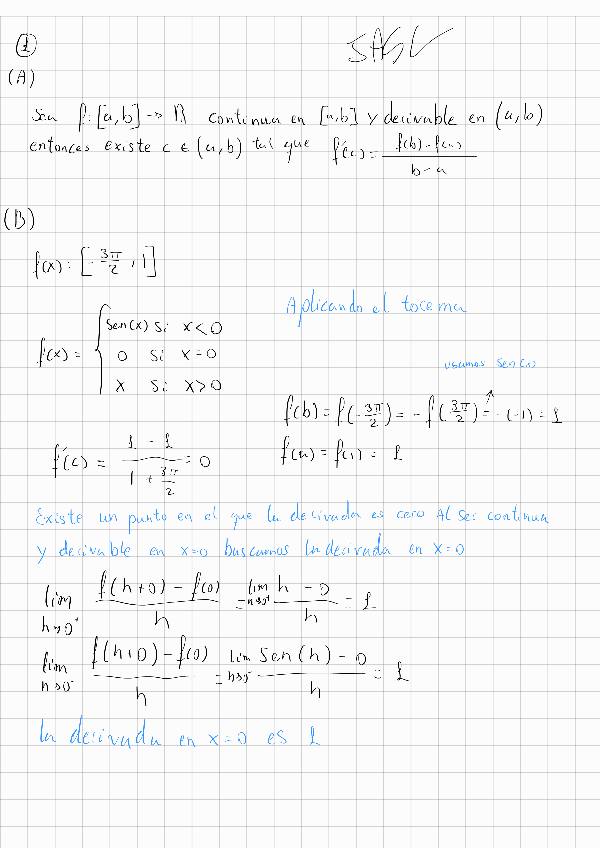 1
SAGV
(A)
Sea f: [a,b] → R continua en [a,b] y derivable en (a,b)
entonces existe c ∈ (a,b) tal que f'(c) = (f(b) - f(a)) / (b - a)
(B)
f(x): [-3π/2, 1]
Aplicando el teorema
f(x) = { sen(x) si x < 0
0 si x = 0
x si x > 0
usamos sen(x)
f(b) = f(-3π/2) = -f(3π/2) = -(-1) = 1
f'(c) = (1 - 1) / (1 + 3π/2) = 0
f(a) = f(1) = 1
Existe un punto en el que la derivada es cero Al ser continua
y derivable en x=0 buscamos la derivada en x=0
lim h→0⁺ (f(h+0) - f(0)) / h = lim h→0⁺ (h - 0) / h = 1
lim h→0⁻ (f(h+0) - f(0)) / h = lim h→0⁻ (sen(h) - 0) / h = 1
la derivada en x=0 es 1